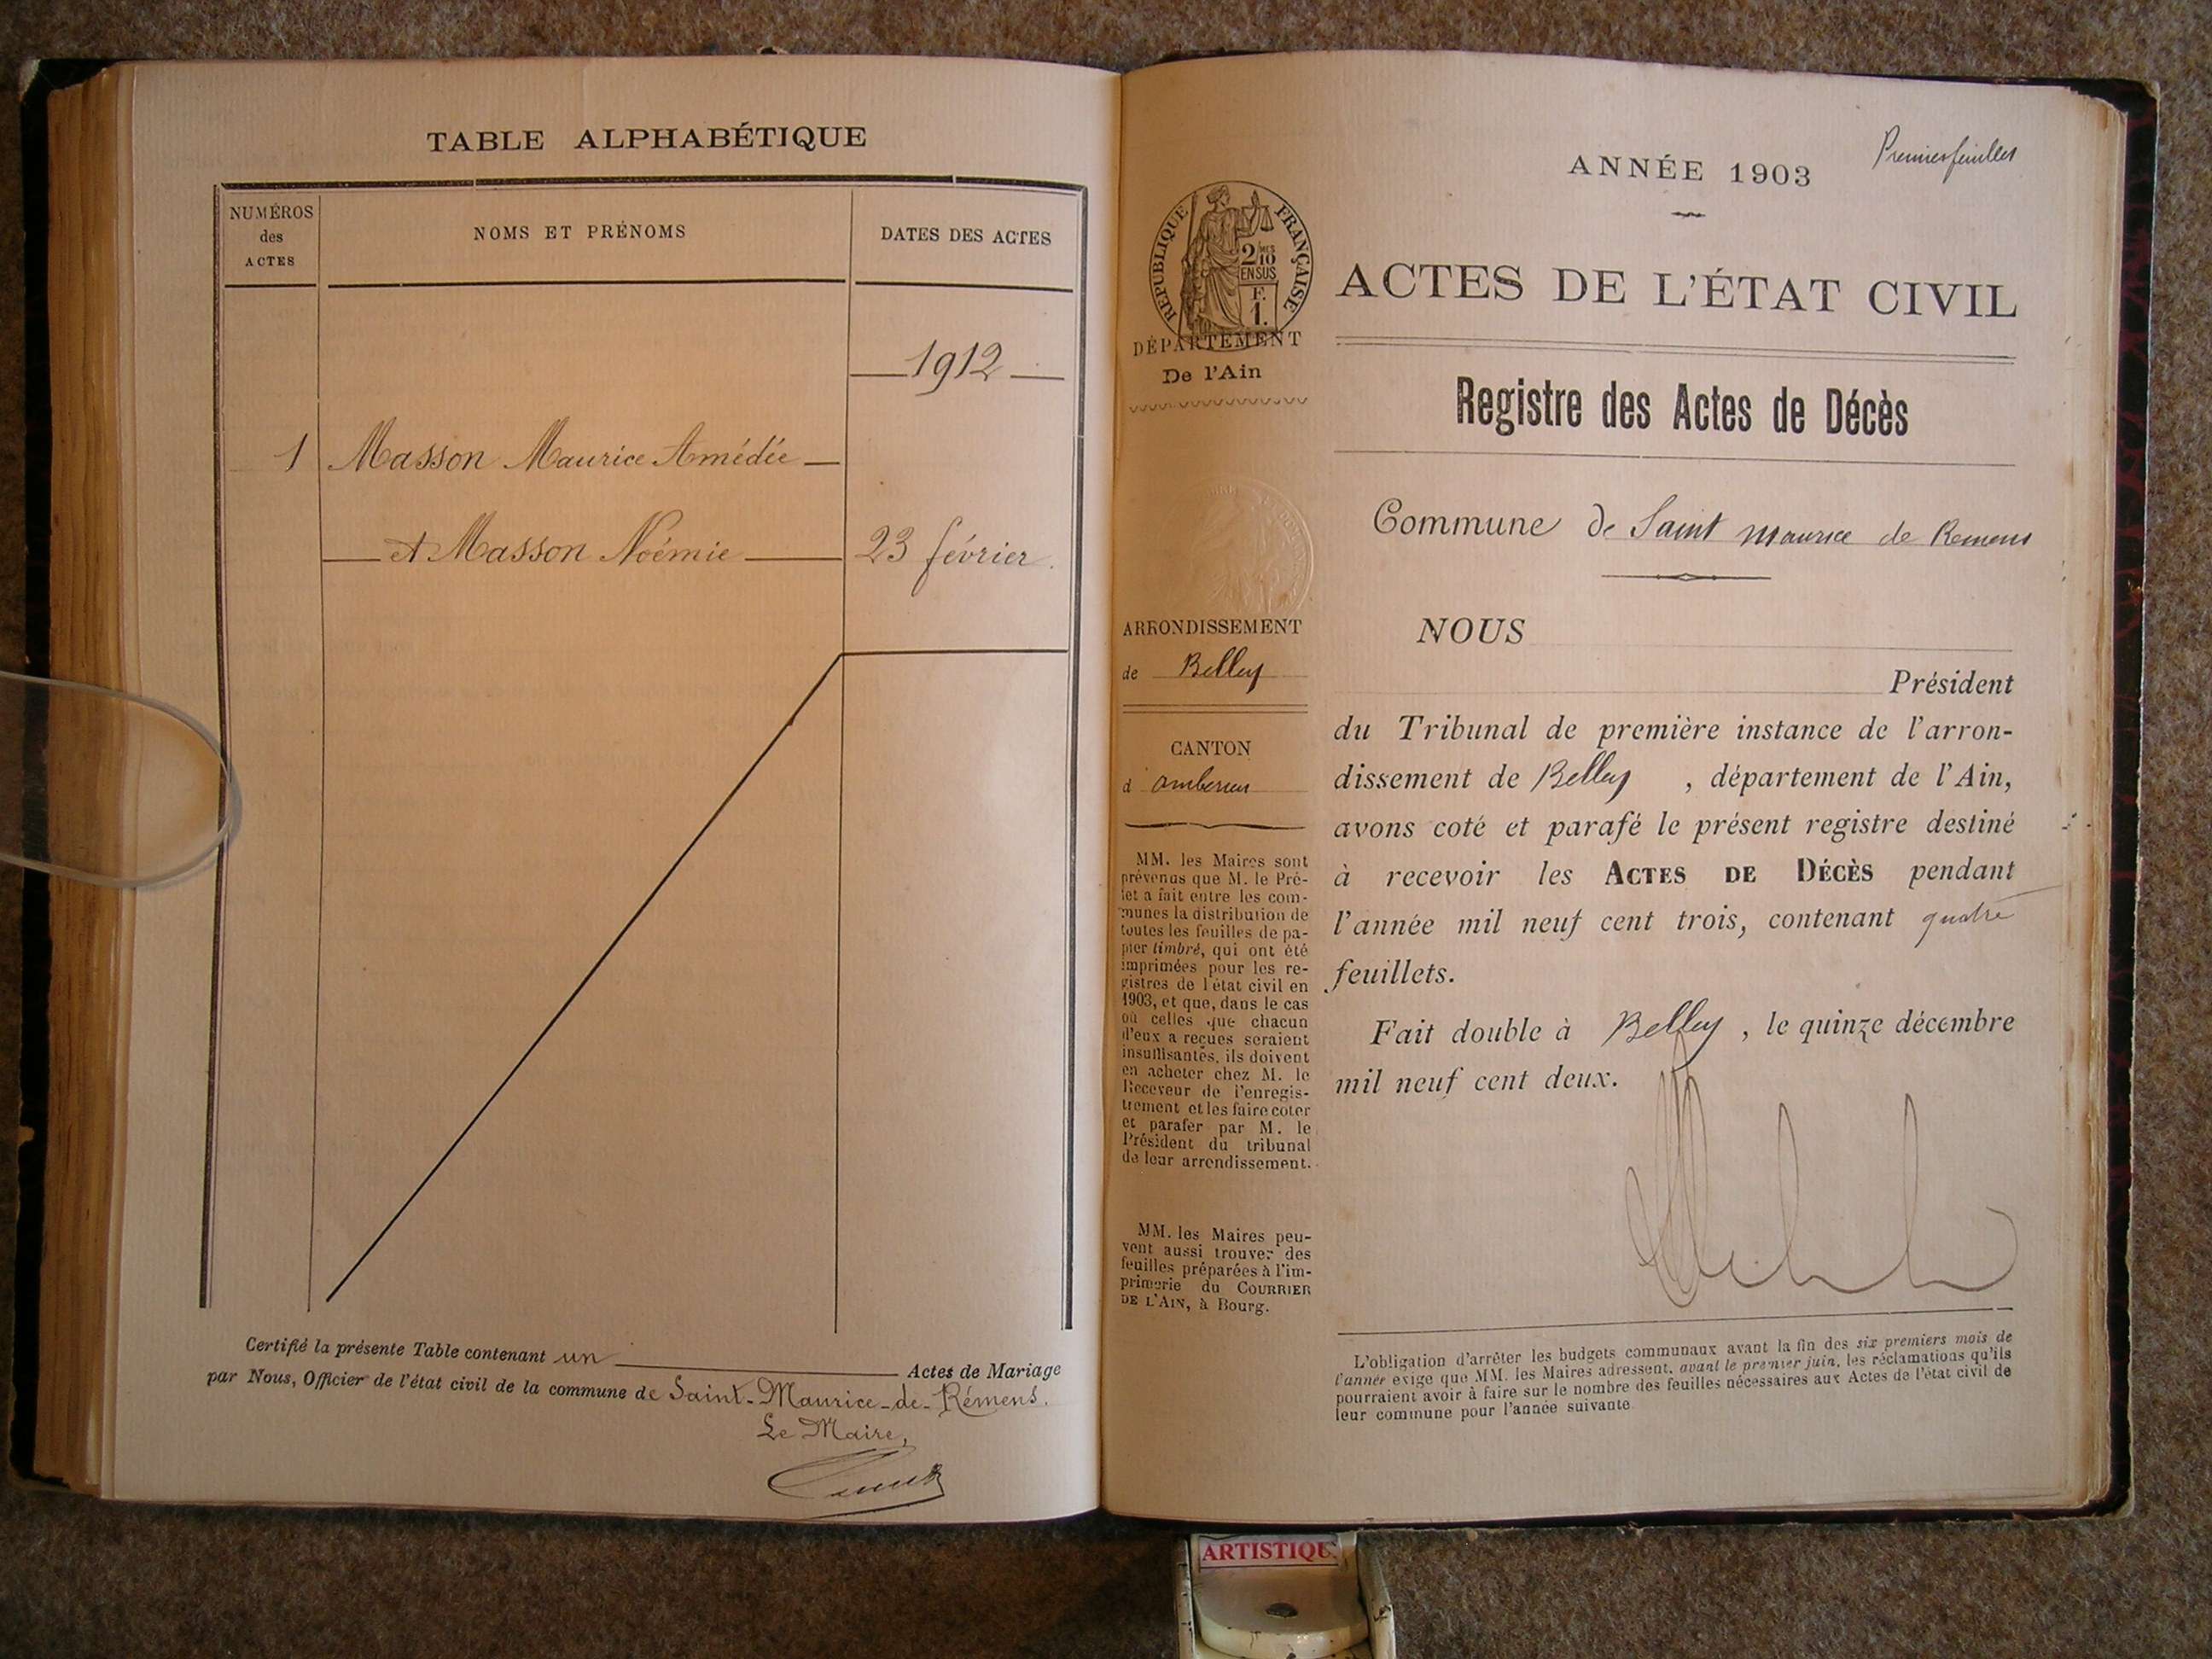 TABLE ALPHABÉTIQUE
NUMÉROS
des
ACTES
NOMS ET PRÉNOMS
DATES DES ACTES
1912
1 Masson Maurice Amédée
et Masson Noémie 23 février.
Certifié la présente Table contenant un Actes de Mariage
par Nous, Officier de l'état civil de la commune de Saint-Maurice-de-Rémens.
Le Maire,
RÉPUBLIQUE FRANÇAISE
2/10 MES
EN SUS
F.
1.
DÉPARTEMENT
De l'Ain
ARRONDISSEMENT
de Belley
CANTON
d'Amberieu
MM. les Maires sont
prévenus que M. le Pré-
fet a fait entre les com-
munes la distribution de
toutes les feuilles de pa-
pier timbré, qui ont été
imprimées pour les re-
gistres de l'état civil en
1903, et que, dans le cas
où celles que chacun
d'eux a reçues seraient
insuffisantes, ils doivent
en acheter chez M. le
Receveur de l'enregis-
trement et les faire coter
et parafer par M. le
Président du tribunal
de leur arrondissement.
MM. les Maires peu-
vent aussi trouver des
feuilles préparées à l'im-
primerie du COURRIER
DE L'AIN, à Bourg.
Premier feuillet
ANNÉE 1903
ACTES DE L'ÉTAT CIVIL
Registre des Actes de Décès
Commune de Saint Maurice de Remens
NOUS
Président
du Tribunal de première instance de l'arron-
dissement de Belley, département de l'Ain,
avons coté et parafé le présent registre destiné
à recevoir les ACTES DE DÉCÈS pendant
l'année mil neuf cent trois, contenant quatre
feuillets.
Fait double à Belley, le quinze décembre
mil neuf cent deux.
L'obligation d'arrêter les budgets communaux avant la fin des six premiers mois de
l'année exige que MM. les Maires adressent, avant le premier juin, les réclamations qu'ils
pourraient avoir à faire sur le nombre des feuilles nécessaires aux Actes de l'état civil de
leur commune pour l'année suivante
ARTISTIQU